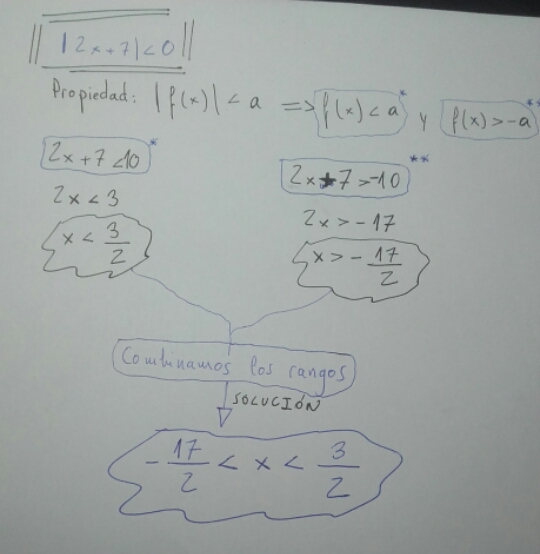 |2x+7|<0
Propiedad: |f(x)|<a => f(x)<a* y f(x)>-a**
2x+7<10*
2x<3
x<3/2
2x+7>-10**
2x>-17
x>-17/2
Combinamos los rangos
SOLUCIÓN
-17/2 < x < 3/2